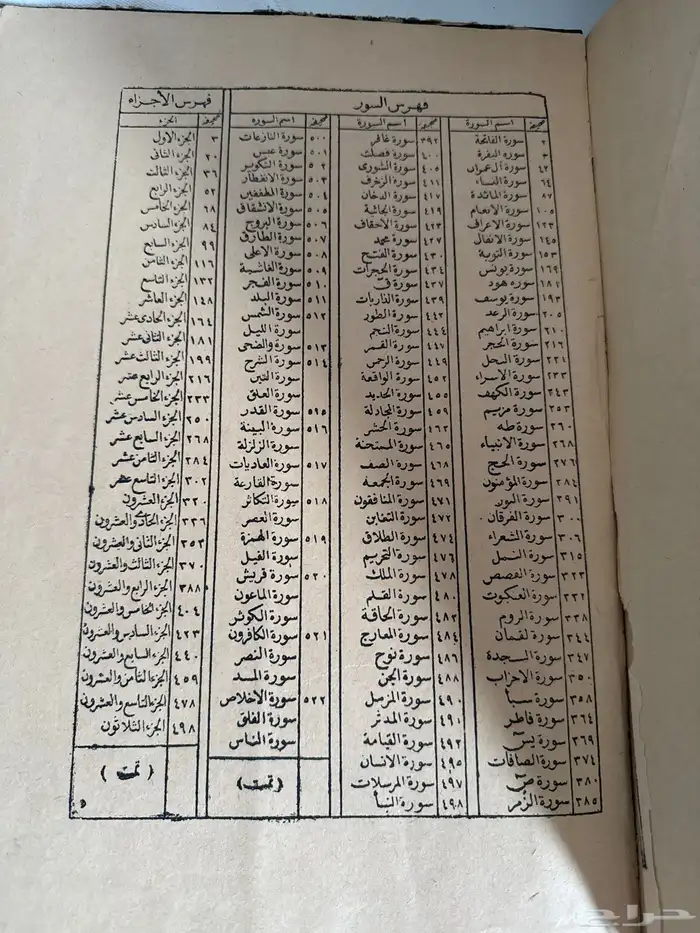 فهرس السور
صحيفة اسم السورة
٢ سورة الفاتحة
٣ سورة البقرة
٤٢ سورة آل عمران
٦٤ سورة النساء
٨٧ سورة المائدة
١٠٥ سورة الانعام
١٢٣ سورة الاعراف
١٤٥ سورة الانفال
١٥٣ سورة التوبة
١٦٩ سورة يونس
١٨١ سورة هود
١٩٣ سورة يوسف
٢٠٥ سورة الرعد
٢١٠ سورة ابراهيم
٢١٦ سورة الحجر
٢٢١ سورة النحل
٢٣٣ سورة الاسراء
٢٤٣ سورة الكهف
٢٥٣ سورة مريم
٢٦٠ سورة طه
٢٦٨ سورة الانبياء
٢٧٦ سورة الحج
٢٨٤ سورة المؤمنون
٢٩١ سورة النور
٣٠٠ سورة الفرقان
٣٠٦ سورة الشعراء
٣١٥ سورة النمل
٣٢٣ سورة القصص
٣٣٢ سورة العنكبوت
٣٣٨ سورة الروم
٣٤٤ سورة لقمان
٣٤٧ سورة السجدة
٣٥٠ سورة الاحزاب
٣٥٨ سورة سبأ
٣٦٤ سورة فاطر
٣٦٩ سورة يس
٣٧٤ سورة الصافات
٣٨٠ سورة ص
٣٨٥ سورة الزمر
صحيفة اسم السورة
٣٩٢ سورة غافر
٤٠٠ سورة فصلت
٤٠٥ سورة الشورى
٤١١ سورة الزخرف
٤١٧ سورة الدخان
٤١٩ سورة الجاثية
٤٢٣ سورة الاحقاف
٤٢٧ سورة محمد
٤٣٠ سورة الفتح
٤٣٤ سورة الحجرات
٤٣٧ سورة ق
٤٣٩ سورة الذاريات
٤٤٢ سورة الطور
٤٤٤ سورة النجم
٤٤٧ سورة القمر
٤٤٩ سورة الرحمن
٤٥٢ سورة الواقعة
٤٥٥ سورة الحديد
٤٥٩ سورة المجادلة
٤٦٢ سورة الحشر
٤٦٥ سورة الممتحنة
٤٦٨ سورة الصف
٤٦٩ سورة الجمعة
٤٧١ سورة المنافقون
٤٧٢ سورة التغابن
٤٧٤ سورة الطلاق
٤٧٦ سورة التحريم
٤٧٨ سورة الملك
٤٨٠ سورة القلم
٤٨٢ سورة الحاقة
٤٨٤ سورة المعارج
٤٨٦ سورة نوح
٤٨٨ سورة الجن
٤٩٠ سورة المزمل
٤٩١ سورة المدثر
٤٩٣ سورة القيامة
٤٩٥ سورة الانسان
٤٩٧ سورة المرسلات
٤٩٨ سورة النبأ
صحيفة اسم السورة
٥٠٠ سورة النازعات
٥٠١ سورة عبس
٥٠٢ سورة التكوير
٥٠٣ سورة الانفطار
٥٠٤ سورة المطففين
٥٠٥ سورة الانشقاق
٥٠٦ سورة البروج
٥٠٧ سورة الطارق
٥٠٨ سورة الاعلى
٥٠٩ سورة الغاشية
٥١٠ سورة الفجر
٥١١ سورة البلد
٥١٢ سورة الشمس
سورة الليل
٥١٣ سورة والضحى
٥١٤ سورة الشرح
سورة التين
سورة العلق
٥١٥ سورة القدر
٥١٦ سورة البينة
سورة الزلزلة
٥١٧ سورة العاديات
سورة القارعة
٥١٨ سورة التكاثر
سورة العصر
٥١٩ سورة الهمزة
سورة الفيل
٥٢٠ سورة قريش
سورة الماعون
سورة الكوثر
٥٢١ سورة الكافرون
سورة النصر
سورة المسد
٥٢٢ سورة الاخلاص
سورة الفلق
سورة الناس
( تمت )
فهرس الأجزاء
صحيفة الجزء
٣ الجزء الاول
٢٠ الجزء الثانى
٣٦ الجزء الثالث
٥٢ الجزء الرابع
٦٨ الجزء الخامس
٨٤ الجزء السادس
٩٩ الجزء السابع
١١٦ الجزء الثامن
١٣٢ الجزء التاسع
١٤٨ الجزء العاشر
١٦٤ الجزء الحادى عشر
١٨١ الجزء الثانى عشر
١٩٩ الجزء الثالث عشر
٢١٦ الجزء الرابع عشر
٢٣٣ الجزء الخامس عشر
٢٥٠ الجزء السادس عشر
٢٦٨ الجزء السابع عشر
٢٨٤ الجزء الثامن عشر
٣٠٢ الجزء التاسع عشر
٣٢٠ الجزء العشرون
٣٣٦ الجزء الحادى والعشرون
٣٥٣ الجزء الثانى والعشرون
٣٧٠ الجزء الثالث والعشرون
٣٨٨ الجزء الرابع والعشرون
٤٠٤ الجزء الخامس والعشرون
٤٢٣ الجزء السادس والعشرون
٤٤٠ الجزء السابع والعشرون
٤٥٩ الجزء الثامن والعشرون
٤٧٨ الجزء التاسع والعشرون
٤٩٨ الجزء الثلاثون
( تمت )
حراج